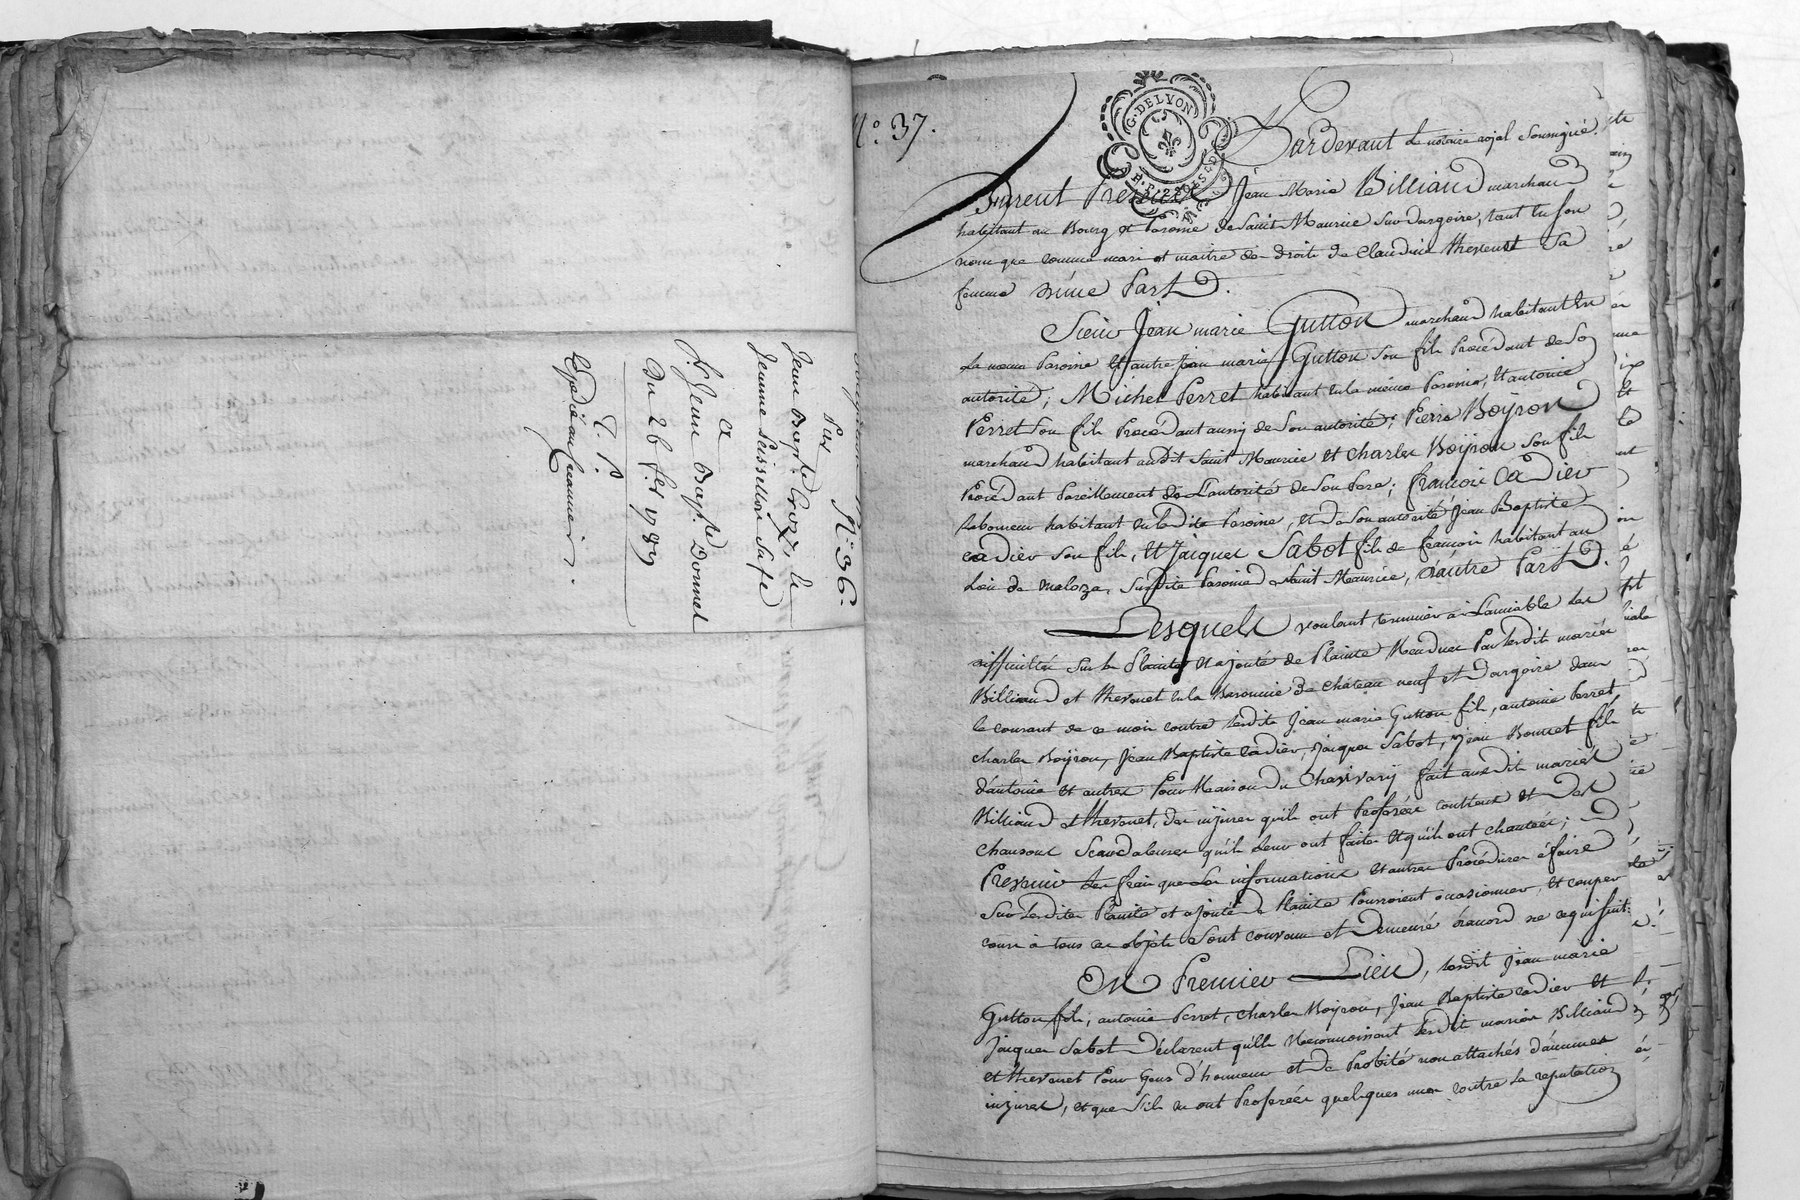 N.° 36.
par
Jean Bapt.te Crozu, le
Jeanne Peissellon Sa fe
a
S.r Jean Bap.te Donnet
Du 26 f.er 1789
Expédié au premier.
N.° 37.
G. DE LYON
Pardevant le notaire royal Soussigné.
Furent Presents Jean Marie Billiand marchand
habitant au Bourg et Paroisse de Saint Maurice Sur dargoire, tant En Son
nom que comme mari et maitre des droits de Claudine thevenet Sa
femme d'une Part.
Sieur Jean marie Gutton marchand habitant En
La meme Paroisse Et autre Jean marie Gutton Son fils Procédant de So
autorité; Michel Perret habitant En la même Paroisse, Et antoine
Perret Son fils Procedant aussy de Son autorité; Pierre Boÿron
marchand habitant audit Saint Maurice et Charles Boÿron Son fils
Procédant Pareillement de L'autorité de Son Pere; françois Cadier
Laboureur habitant En ladite Paroisse, Et de Son autorité Jean Baptiste
Cadier Son fils, Et Jacques Sabot fils de françois habitant au
Lieu de maloza, Susdite Paroisse de Saint Maurice, d'autre Part.
Lesquels voulant terminer à L'amiable Les
difficultés Sur la Plainte Et ajouté de Plainte Rendues Par Lesdits mariés
Billiand et thevenet En la Baronnie de Chateau neuf et Dargoire dans
le courant de ce mois contre Lesdits Jean marie Gutton fils, antoine Perret
Charles Boÿron, Jean Baptiste Cadier, Jacques Sabot, Jean Bonnet fils
d'antoine et autres Pour Raison du Charivary fait auxdits mariés
Billiand et thevenet, des injures qu'ils ont Proferées contreux et des
Chansons Scandaleuses qu'ils Leur ont faites Et qu'ils ont chantées; Et
Prevenir Les frais que Les informations Et autres Procédures à faire
Sur Lesdites Plainte et ajouté de Plainte Pourroient occasionner, Et couper
cours à tous ces objets Sont convenus et Demeurés d'accord de ce qui Suit:
En Premier Lieu, Lesdits Jean marie
Gutton fils, antoine Perret, Charles Boÿron, Jean Baptiste Cadier Et
Jacques Sabot Déclarent qu'ils Reconnoissent Lesdits mariés Billiand
et thevenet Pour Gens d'honneur et de Probité non attachés d'aucunes
injures, et que S'ils en ont Proferées quelques unes contre La reputation